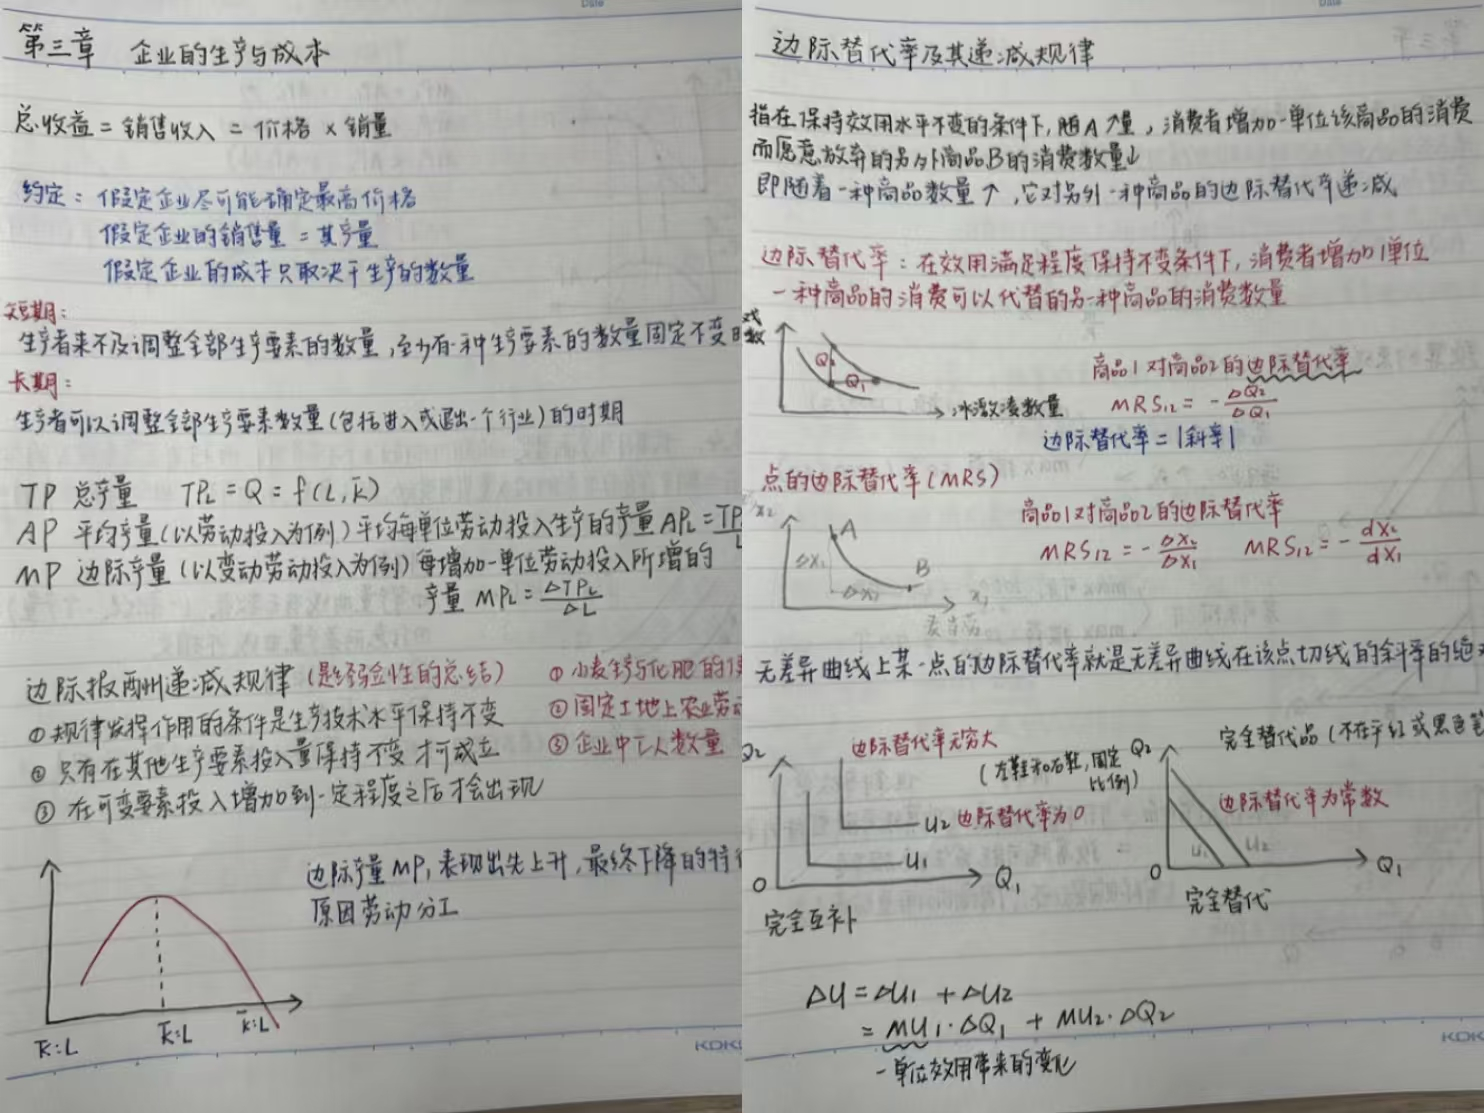 Date
第三章 企业的生产与成本
总收益 = 销售收入 = 价格 × 销量
约定：假定企业尽可能确定最高价格
假定企业的销售量 = 其产量
假定企业的成本只取决于生产的数量
短期：
生产者来不及调整全部生产要素的数量，至少有一种生产要素的数量固定不变
长期：
生产者可以调整全部生产要素数量(包括进入或退出一个行业)的时期
TP 总产量 TPL = Q = f(L, K̄)
AP 平均产量(以劳动投入为例)平均每单位劳动投入生产的产量 APL = TP/L
MP 边际产量(以变动劳动投入为例)每增加一单位劳动投入所增的
产量 MPL = ΔTPL/ΔL
边际报酬递减规律(是经验性的总结) ① 小麦生产与化肥的
① 规律发挥作用的条件是生产技术水平保持不变 ② 固定土地上农业劳
② 只有在其他生产要素投入量保持不变 才可成立 ③ 企业中工人数量
③ 在可变要素投入增加到一定程度之后才会出现
边际产量MP，表现出先上升，最终下降的特
原因劳动分工
K̄:L K̄:L K̄:L
KOKU
Date
边际替代率及其递减规律
指在保持效用水平不变的条件下，随A↑量，消费者增加一单位该商品的消费
而愿意放弃的另外商品B的消费数量↓
即随着一种商品数量↑，它对另外一种商品的边际替代率递减
边际替代率：在效用满足程度保持不变条件下，消费者增加1单位
一种商品的消费可以代替的另一种商品的消费数量
数
Q2
Q1
冰激凌数量
商品1对商品2的边际替代率
MRS12 = - ΔQ2/ΔQ1
边际替代率 = |斜率|
点的边际替代率(MRS)
x2
A
B
x1
商品1对商品2的边际替代率
MRS12 = - ΔX2/ΔX1 MRS12 = - dX2/dX1
无差异曲线上某一点的边际替代率就是无差异曲线在该点切线的斜率的绝
Q2 边际替代率无穷大
(左鞋和右鞋，固定
比例)
U2 边际替代率为0
U1
O Q1
完全互补
Q2 完全替代品(不在乎红或黑色笔
边际替代率为常数
U1 U2
O Q1
完全替代
ΔU = ΔU1 + ΔU2
= MU1·ΔQ1 + MU2·ΔQ2
一单位效用带来的变化
KOKU